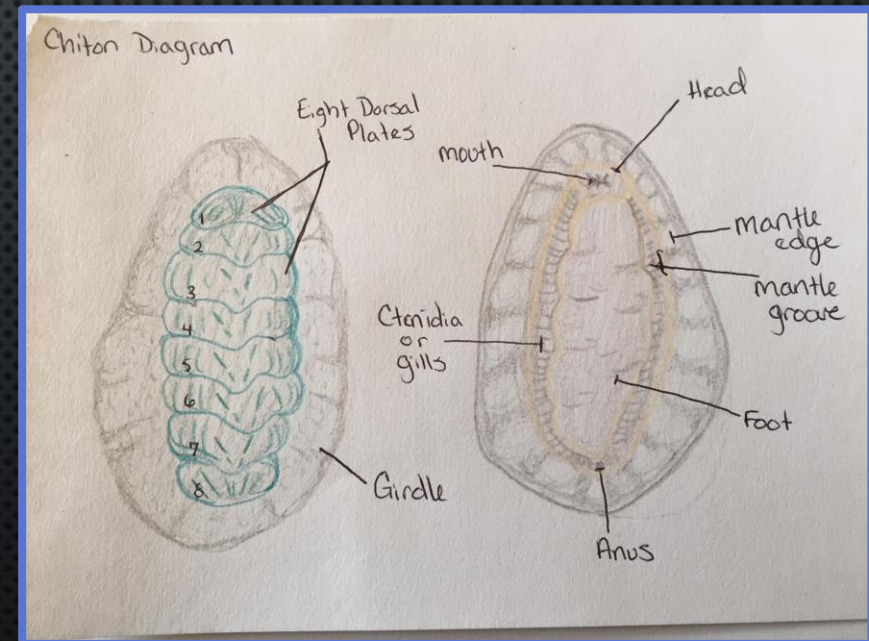 Chiton Diagram
Eight Dorsal
Plates
1
2
3
4
5
6
7
8
Girdle
Head
mouth
mantle
edge
mantle
groove
Ctenidia
or
gills
Foot
Anus